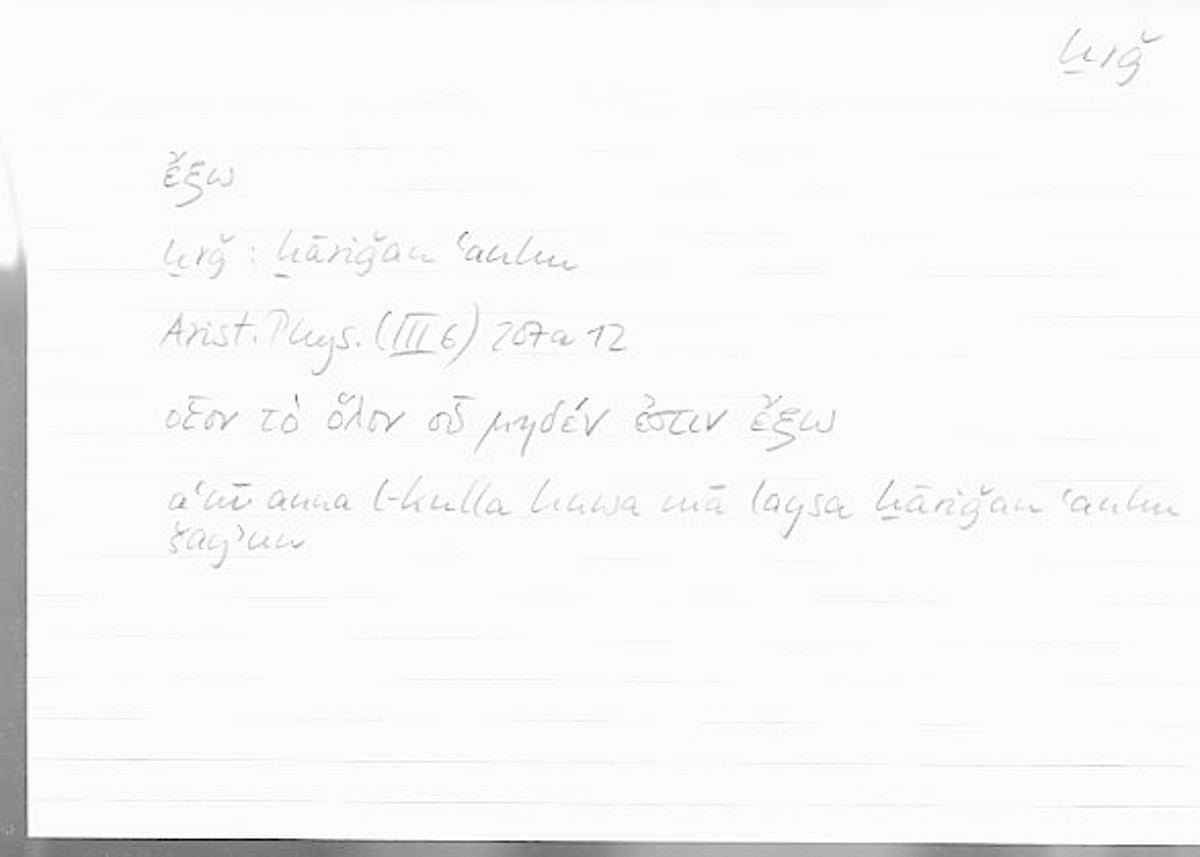 ḫrǧ
ἔξω
ḫrǧ : ḫāriǧan ʿanhu
Arist. Phys. (III 6) 207a 12
οἷον τὸ ὅλον οὗ μηδέν ἐστιν ἔξω
aʿnī anna l-kulla huwa mā laysa ḫāriǧan ʿanhu
šayʾun